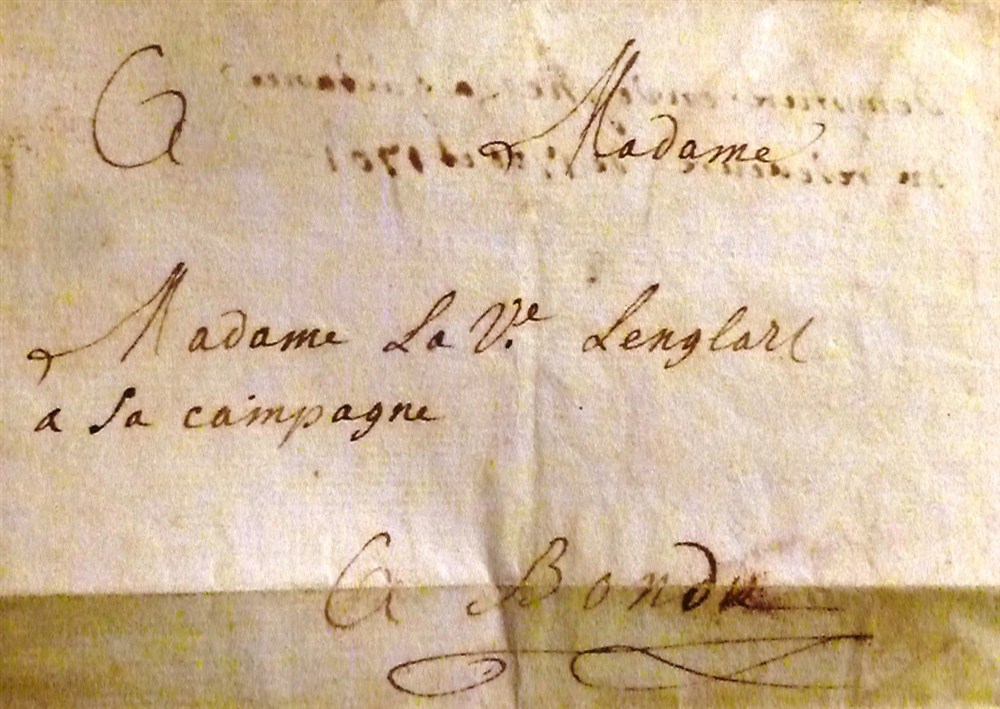 A Madame
Madame La V.e Lenglart
a Sa campagne
A Bondu